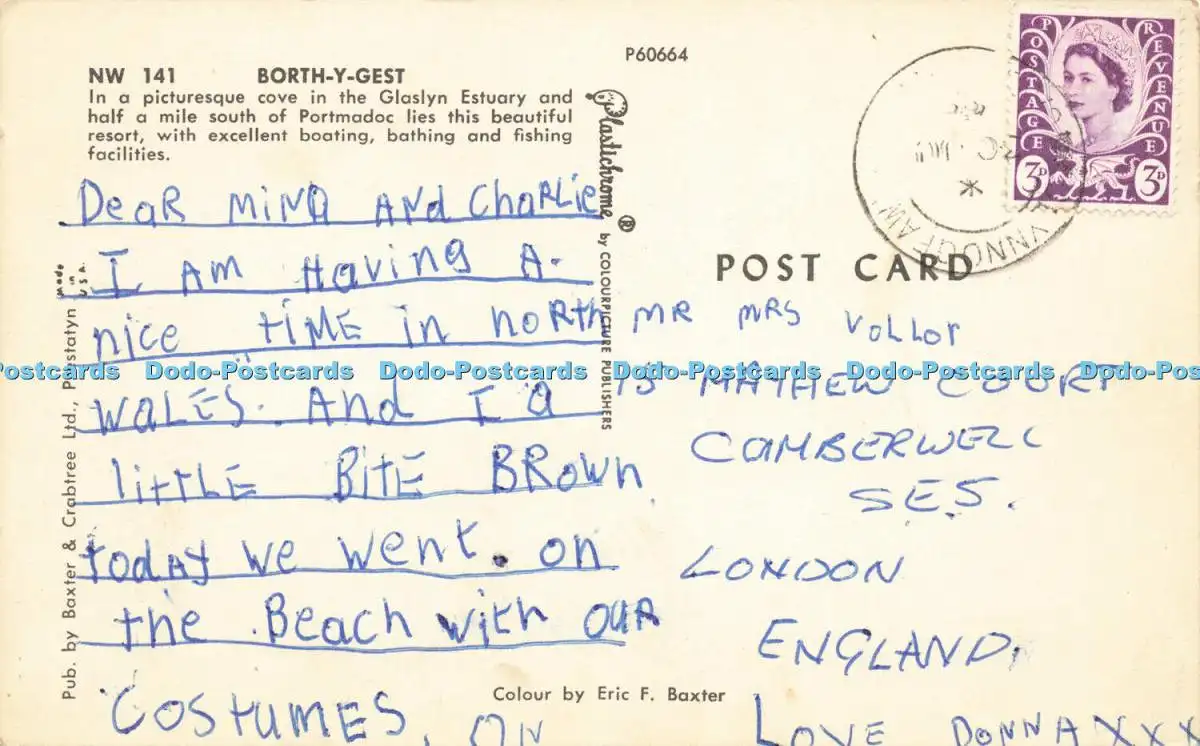 P60664
NW 141 BORTH-Y-GEST
In a picturesque cove in the Glaslyn Estuary and
half a mile south of Portmadoc lies this beautiful
resort, with excellent boating, bathing and fishing
facilities.
DeaR MiNa AnD ChaRLie
I AM Having A
nice TiME in noRtH
WaLES. And I a
littLE BitE BRown
today we went. on
the Beach with OUR
COStUMES, ON
Pub. by Baxter & Crabtree Ltd., Prestatyn
Made in U.S.A.
Plastichrome ® by COLOURPICTURE PUBLISHERS
Colour by Eric F. Baxter
POSTAGE REVENUE
3D 3D
POST CARD
MR MRS VoLLoT
15 MATHEW COURT
CAMBERWELL
SE5.
LONDON
ENGLAND.
LOVE DONNA XXX
Dodo-Postcards Dodo-Postcards Dodo-Postcards Dodo-Postcards Dodo-Postcards